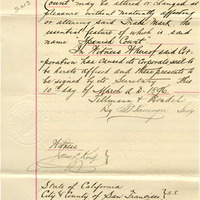 Count may be altered or changed at
pleasure without materially affecting
or altering said Trade Mark, the
essential feature of which is said
name "Spanish Count".
In Witness Whereof said Cor-
poration has caused its Corporate seal to
be hereto affixed and these presents to
be signed by its Secretary this
10th day of March A.D. 1896.
Tillmann & Bendel
By
Secty
Witness
State of California
City & County of San Francisco } SS